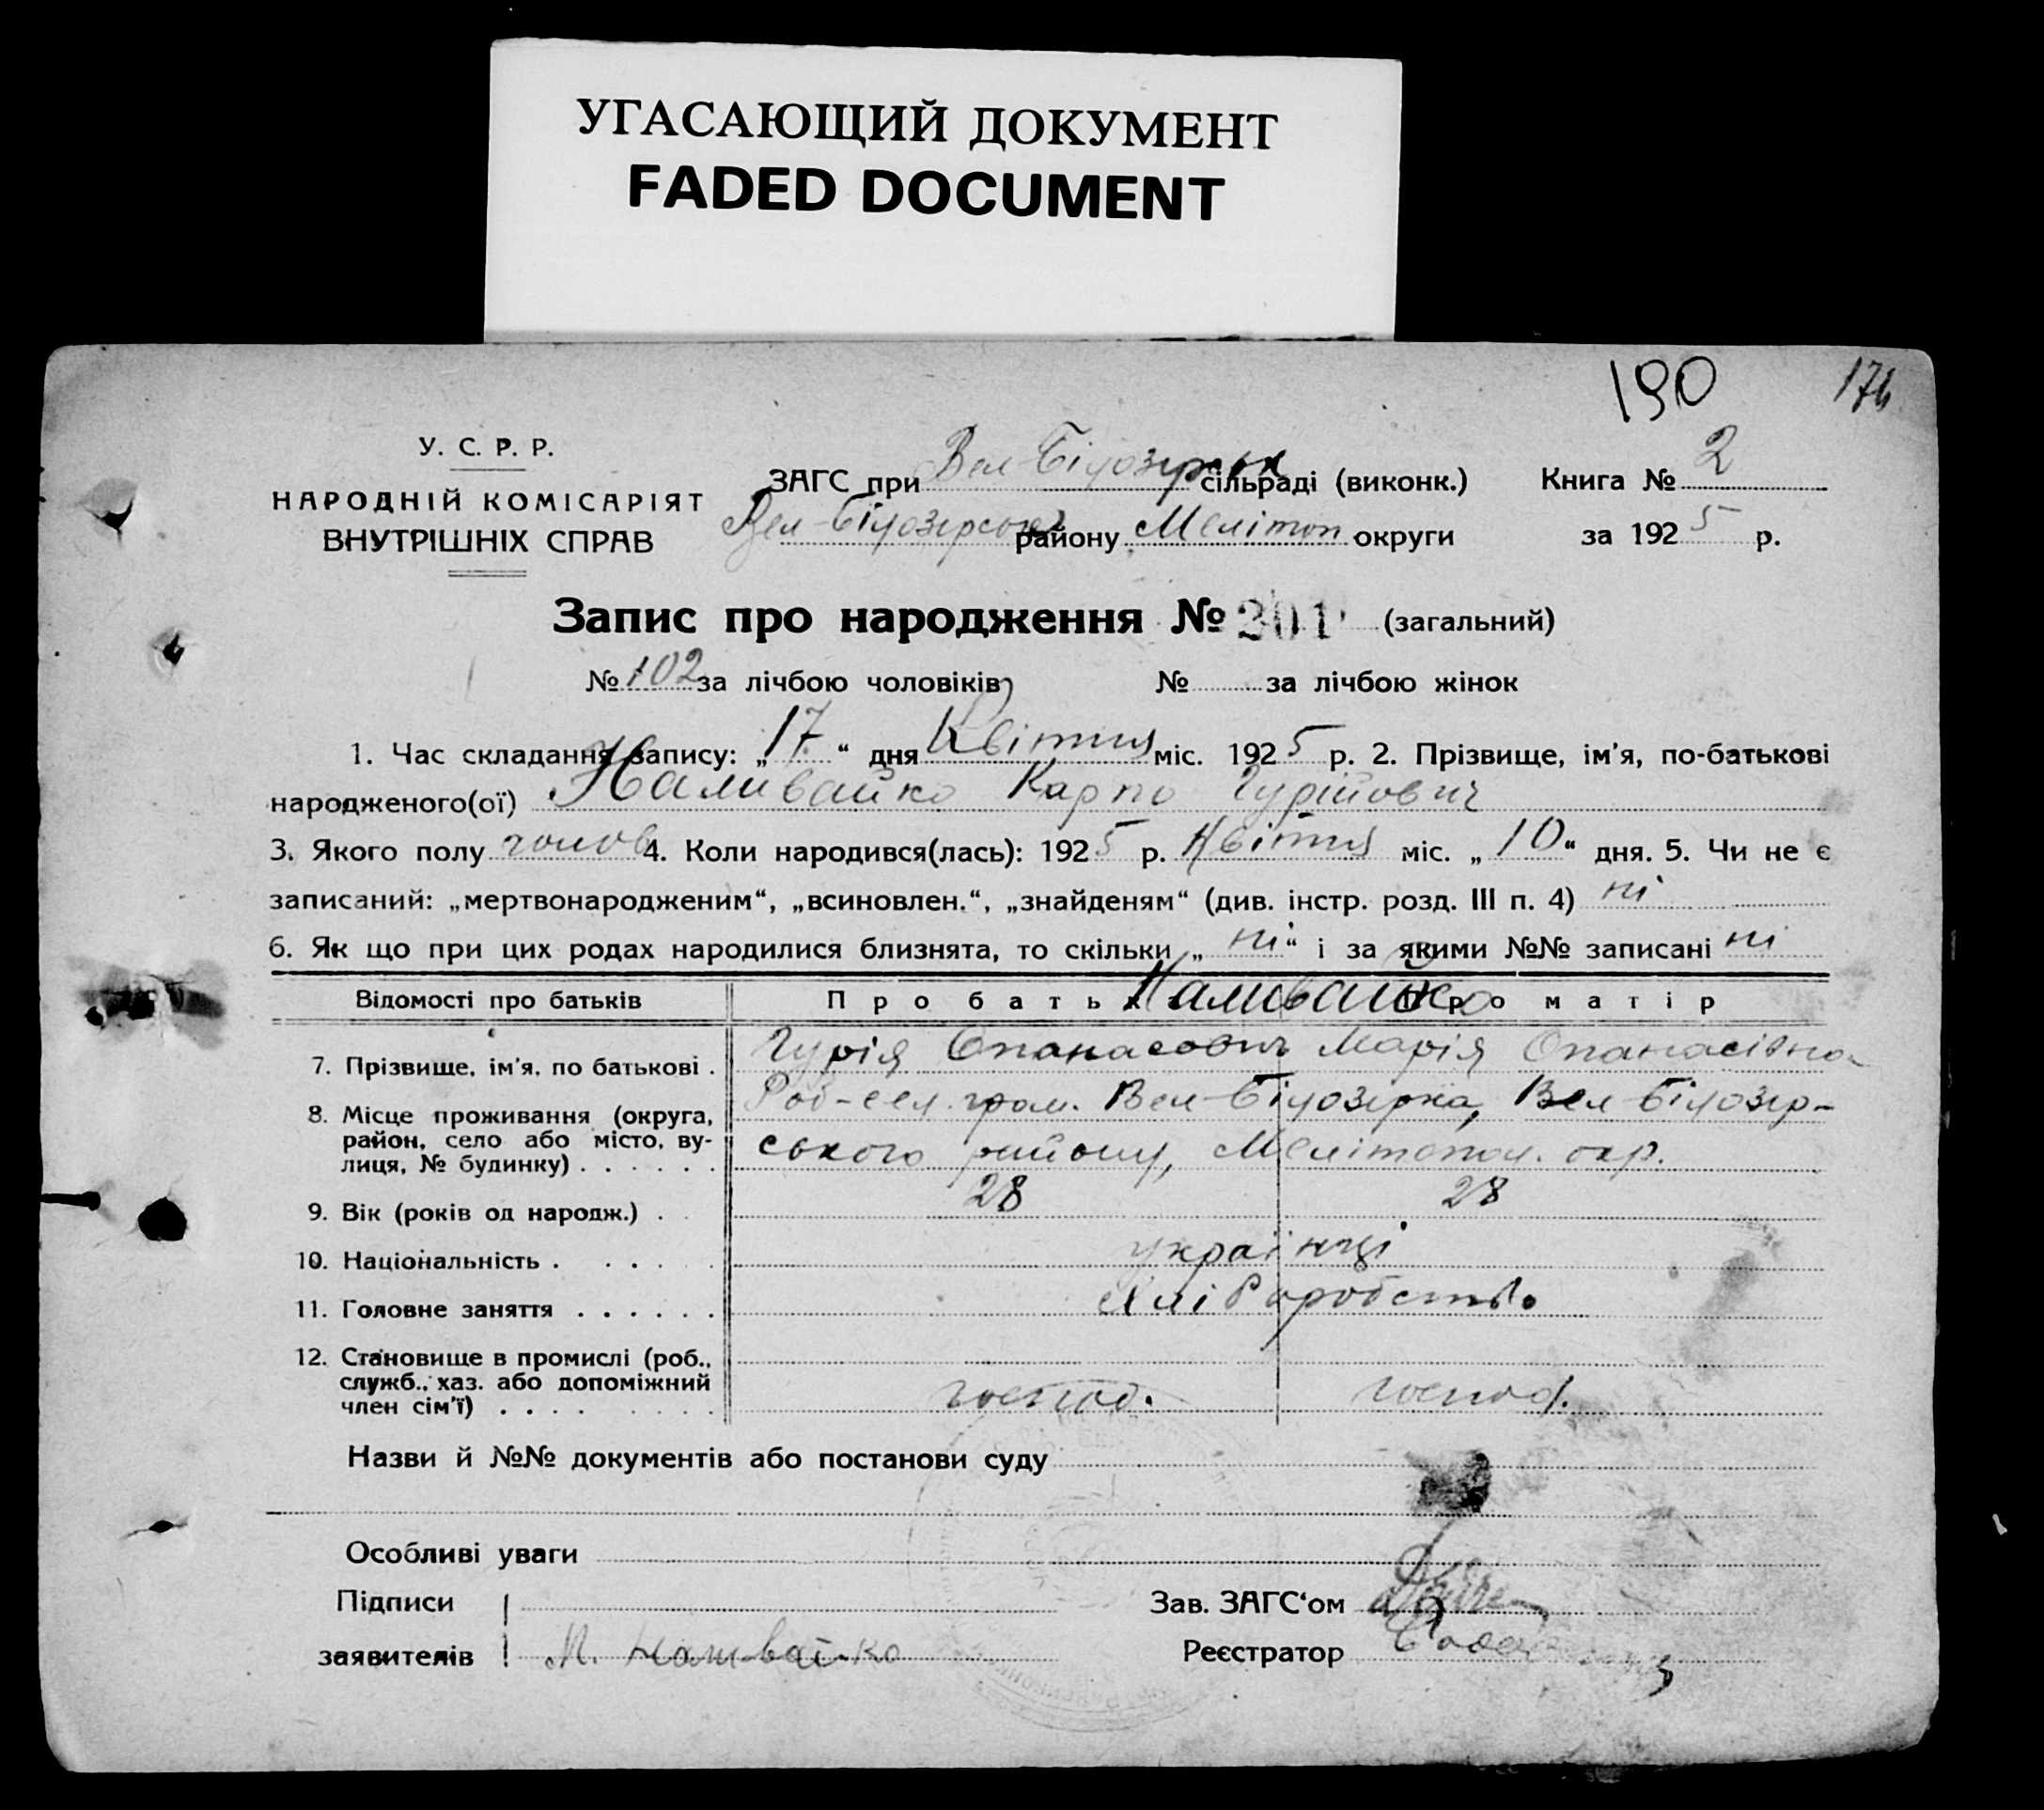 УГАСАЮЩИЙ ДОКУМЕНТ
FADED DOCUMENT
190 174
У. С. Р. Р.
НАРОДНІЙ КОМІСАРІЯТ
ВНУТРІШНІХ СПРАВ
ЗАГС при Вел-Білозірськ сільраді (виконк.) Книга № 2
Вел-Білозірсько району Мелітоп округи за 1925 р.
Запис про народження № 201 (загальний)
№ 102 за лічбою чоловіків № за лічбою жінок
1. Час складання запису: „17“ дня Квітня міс. 1925 р. 2. Прізвище, ім'я, по-батькові
народженого(ої) Наливайко Карпо Гурійович
3. Якого полу чолов 4. Коли народився(лась): 1925 р. Квітня міс. „10“ дня. 5. Чи не є
записаний: „мертвонародженим“, „всиновлен.“, „знайденям“ (див. інстр. розд. III п. 4) ні
6. Як що при цих родах народилися близнята, то скільки „ні“ і за якими №№ записані ні
Відомості про батьків Про батька Наливайко Про матір
7. Прізвище, ім'я, по батькові . Гурія Опанасович Марія Опанасівна
8. Місце проживання (округа, район, село або місто, вулиця, № будинку) . . . . . . гром. Вел-Білозірка, Вел Білозір-
ського району, Мелітопол. окр.
9. Вік (років од народж.) . . 28 28
10. Національність . . . . . українці
11. Головне заняття . . . . . . Хліборобство
12. Становище в промислі (роб., служб., хаз. або допоміжний член сім'ї) . . . . господ. господ.
Назви й №№ документів або постанови суду
Особливі уваги
Підписи Зав. ЗАГС‘ом
заявителів М. Наливайко Реєстратор